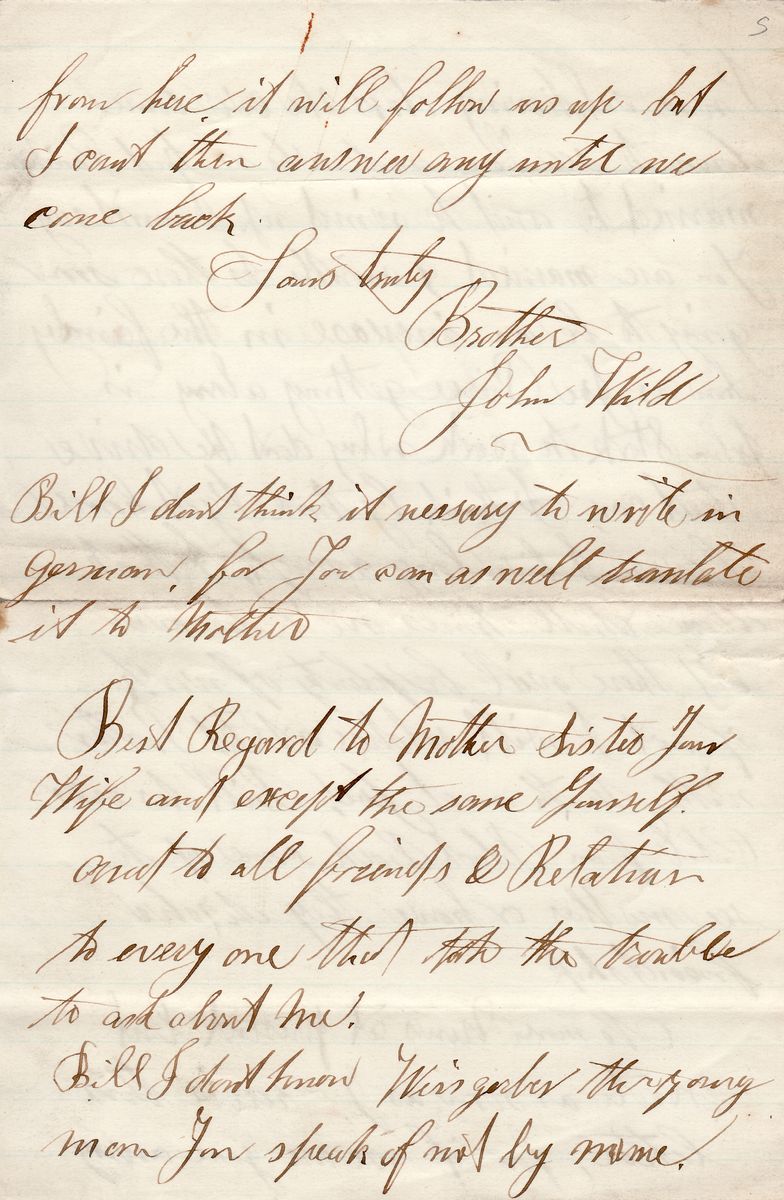 5
from here it will follow us up but
I cant then answer any until we
come back.
Yours truly
Brother
John Wild
Bill I dont think it nessary to write in
German, for You can as well tranlate
it to Mother
Best Regard to Mother Sister Your
Wife and except the same Yourself.
and to all friends & Relation
to every one that the trouble
to ask about me.
Bill I dont know the young
man You speak of not by name.